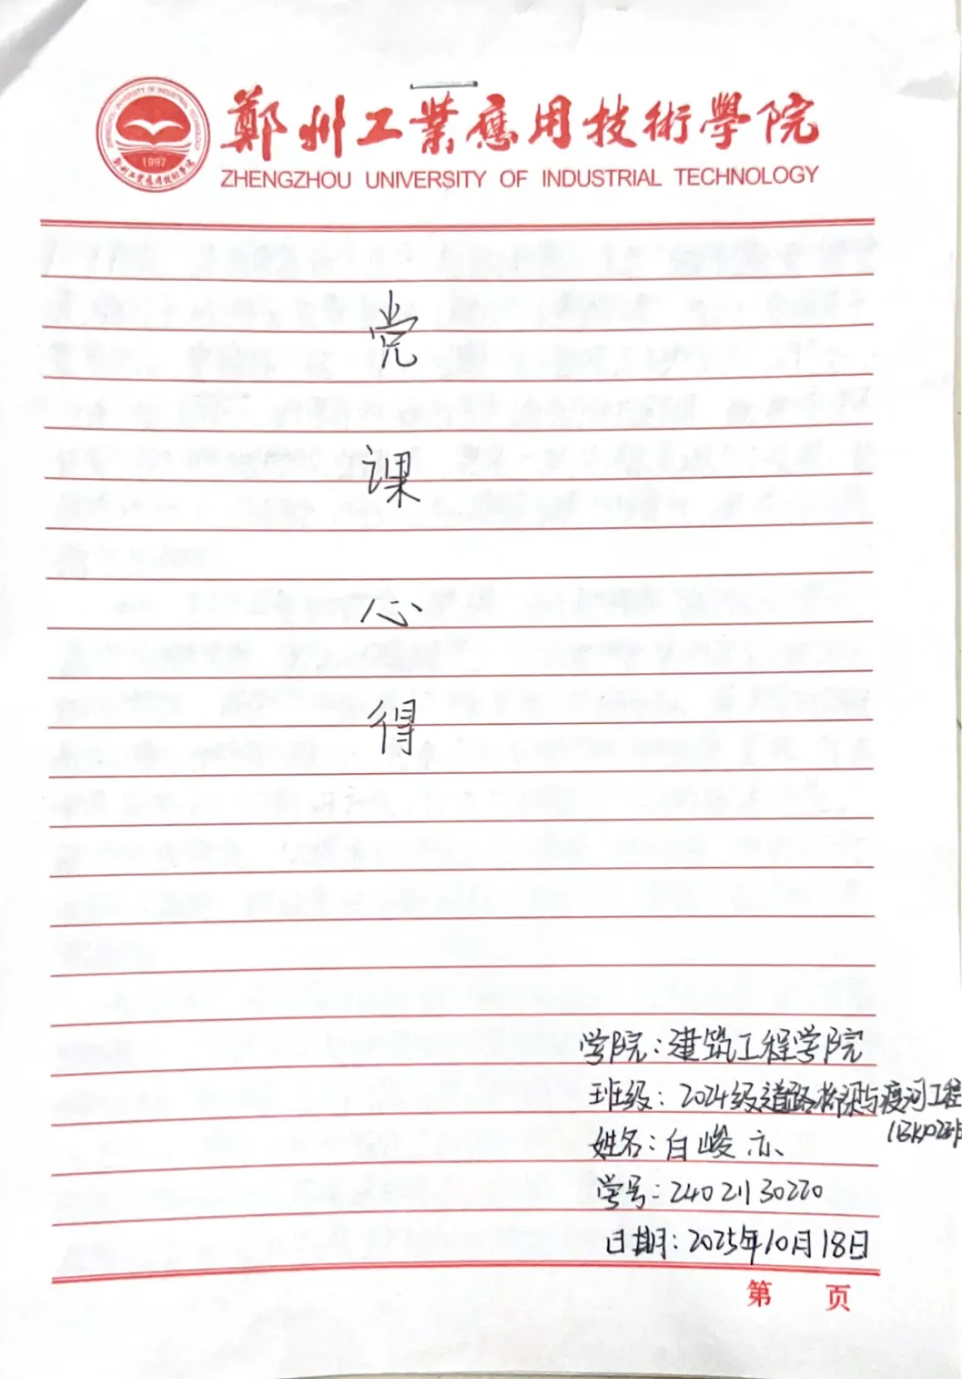 鄭州工業應用技術學院
ZHENGZHOU UNIVERSITY OF INDUSTRIAL TECHNOLOGY
1997
党
课
心
得
学院：建筑工程学院
班级：2024级道路桥梁与渡河工程
姓名：白峻亦
学号：24021130220
日期：2025年10月18日
第 页